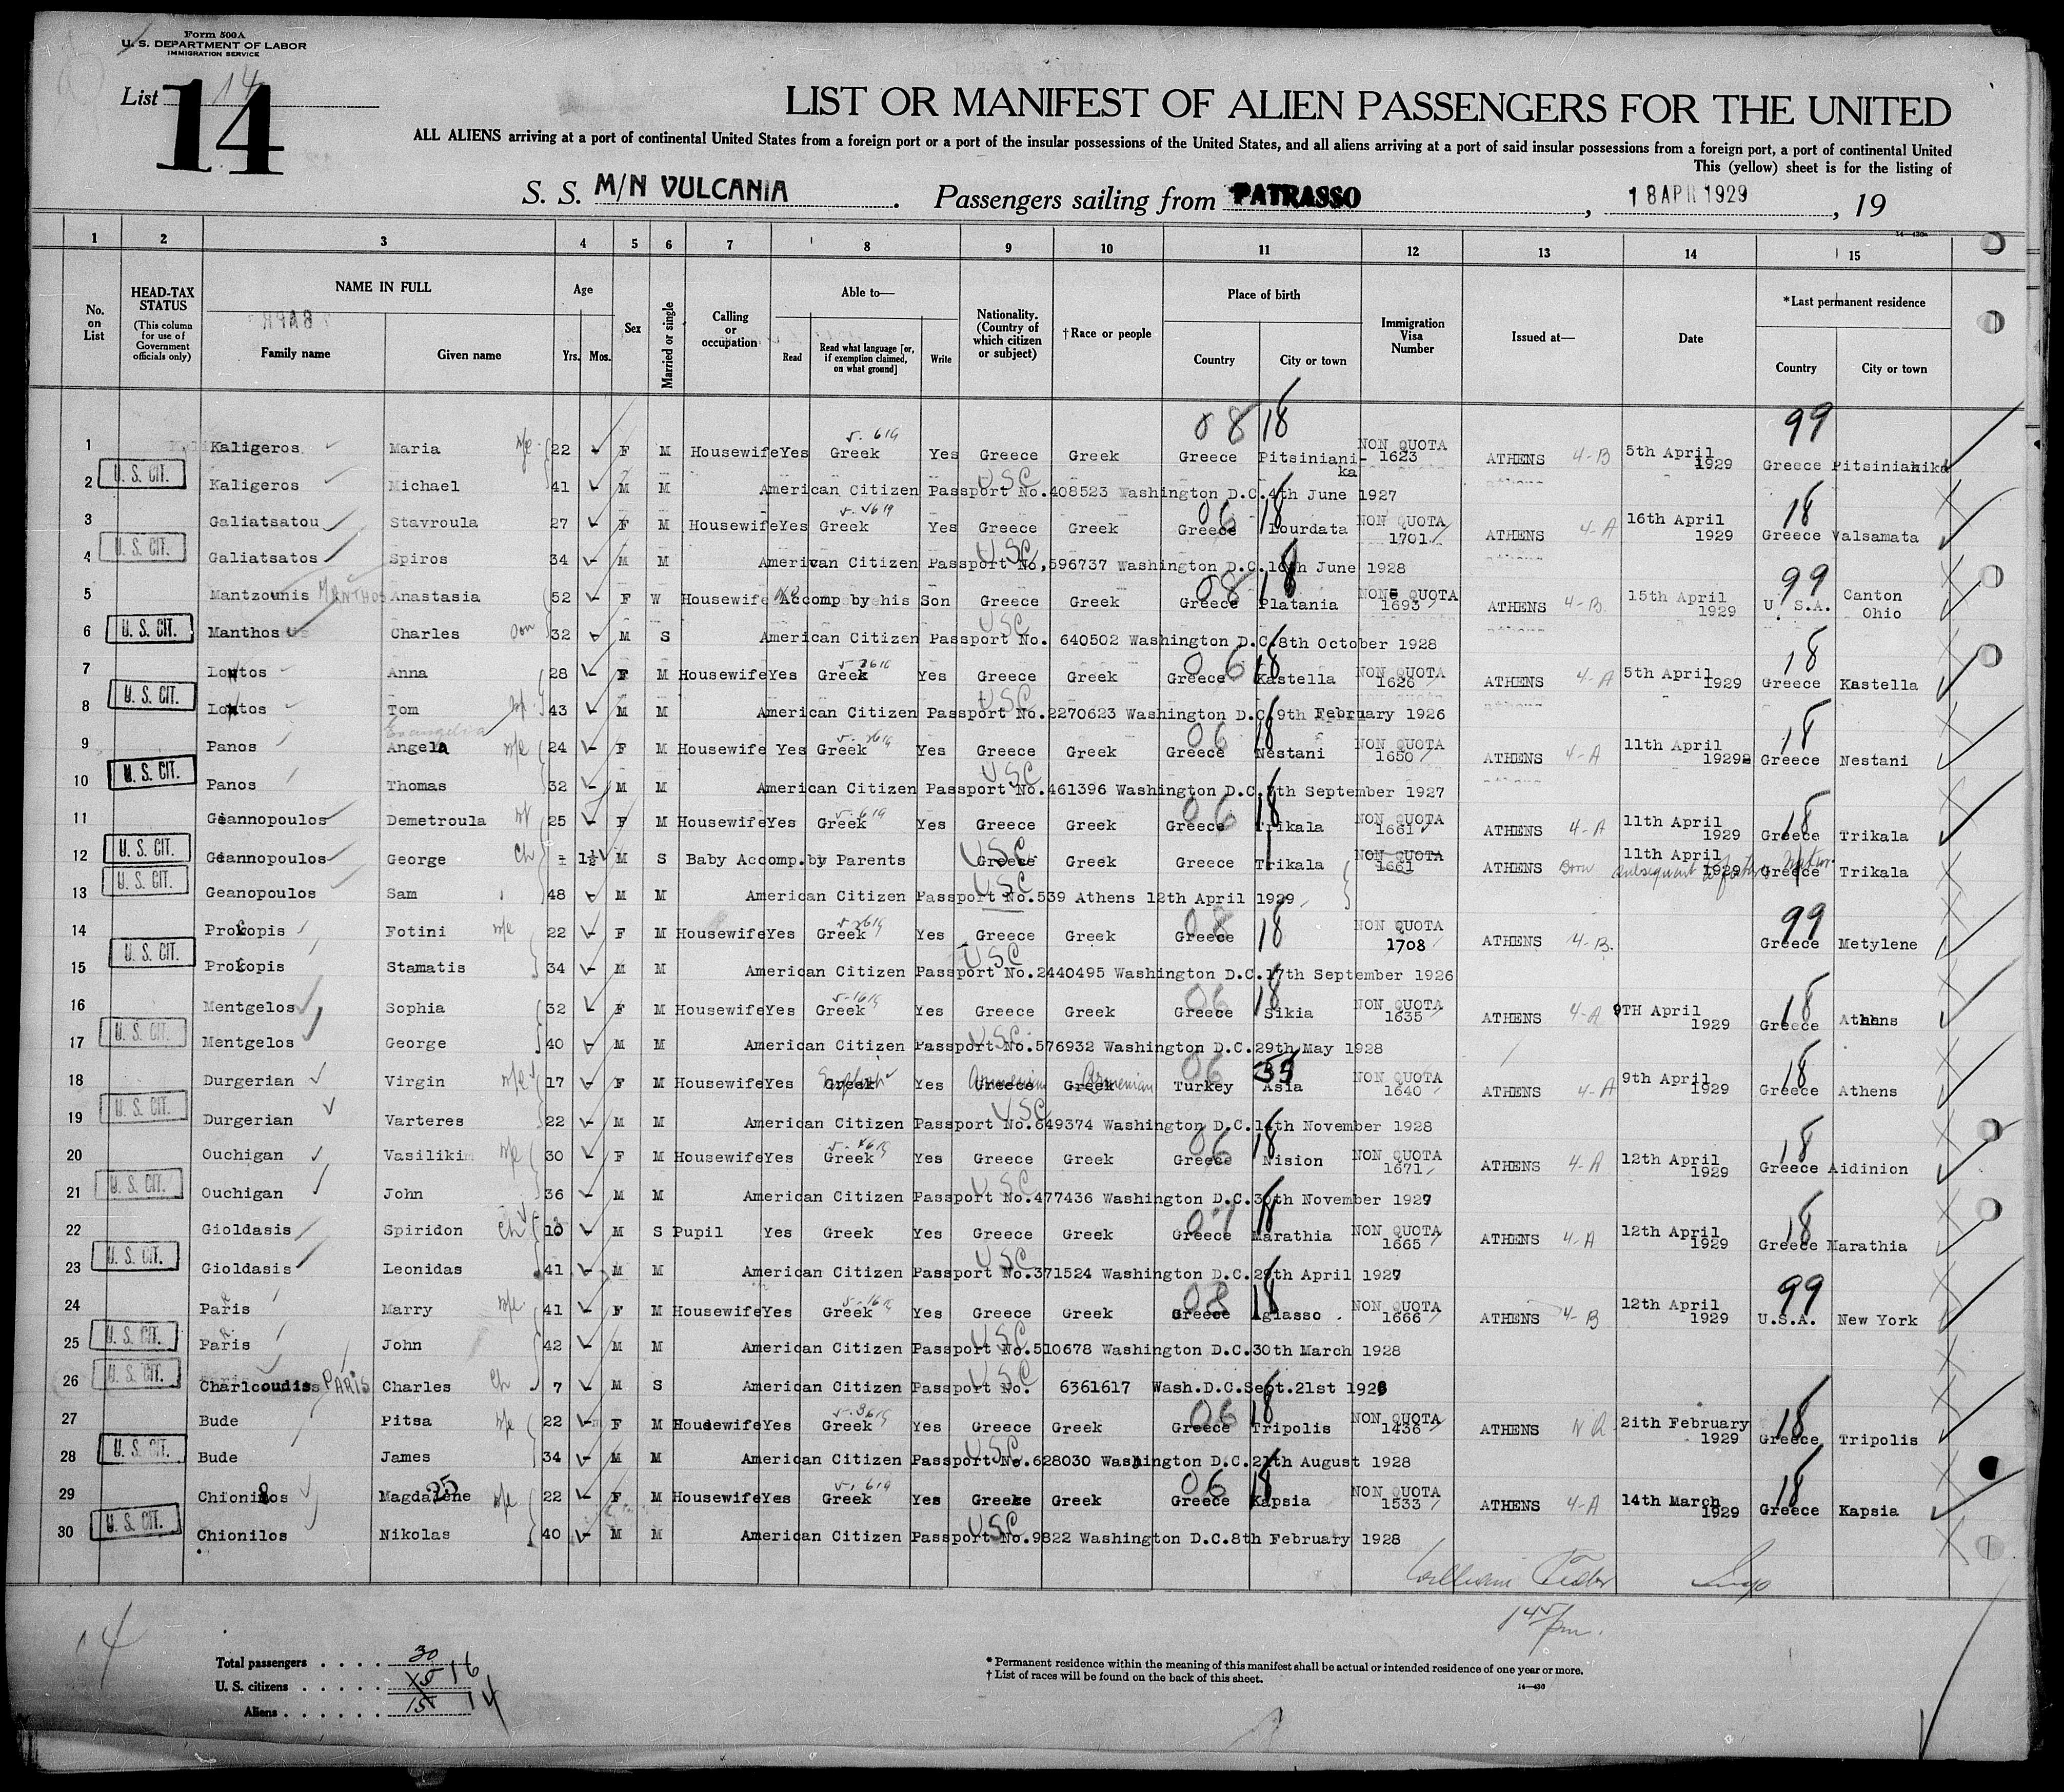 Form 500A
U. S. DEPARTMENT OF LABOR
IMMIGRATION SERVICE
List 14
14
LIST OR MANIFEST OF ALIEN PASSENGERS FOR THE UNITED
ALL ALIENS arriving at a port of continental United States from a foreign port or a port of the insular possessions of the United States, and all aliens arriving at a port of said insular possessions from a foreign port, a port of continental United
This (yellow) sheet is for the listing of
S. S. M/N VULCANIA . Passengers sailing from PATRASSO , 18 APR 1929 , 19
14—430a
1 2 3 4 5 6 7 8 9 10 11 12 13 14 15
No. on List
HEAD-TAX STATUS (This column for use of Government officials only)
NAME IN FULL
Family name Given name
Age
Yrs. Mos.
Sex
Married or single
Calling or occupation
Able to—
Read Read what language [or, if exemption claimed, on what ground] Write
Nationality. (Country of which citizen or subject)
†Race or people
Place of birth
Country City or town
Immigration Visa Number
Issued at—
Date
*Last permanent residence
Country City or town
08 18 99
1 Kaligeros Maria 22 F M Housewife Yes Greek Yes Greece Greek Greece Pitsinianika NON QUOTA 1623 ATHENS 4-B 5th April 1929 Greece Pitsinianika
2 U. S. CIT. Kaligeros Michael 41 M M American Citizen Passport No.408523 Washington D.C.4th June 1927 USC
3 Galiatsatou Stavroula 27 F M Housewife Yes Greek Yes Greece Greek Greece 06 18 Lourdata NON QUOTA 1701 ATHENS 4-A 16th April 1929 18 Greece Valsamata
4 U. S. CIT. Galiatsatos Spiros 34 M M American Citizen Passport No,596737 Washington D.C. June 1928 USC
5 Mantzounis MANTHOS Anastasia 52 F W Housewife Accomp by his Son Greece Greek Greece 08 18 Platania NON QUOTA 1693 ATHENS 4-B 15th April 1929 99 U.S.A. Canton Ohio
6 U. S. CIT. Manthos Charles Son 32 M S American Citizen Passport No. 640502 Washington D.C.8th October 1928 USC
7 Lontos Anna 28 F M Housewife Yes Greek Yes Greece Greek Greece 06 18 Kastella NON QUOTA 1626 ATHENS 4-A 5th April 1929 18 Greece Kastella
8 U. S. CIT. Lontos Tom 43 M M American Citizen Passport No.2270623 Washington D.C.9th February 1926 USC
9 Panos Evangelia Angela 24 F M Housewife Yes Greek Yes Greece Greek Greece 06 18 Nestani NON QUOTA 1650 ATHENS 4-A 11th April 1929 18 Greece Nestani
10 U. S. CIT. Panos Thomas 32 M M American Citizen Passport No.461396 Washington D.C. September 1927 USC
11 Geannopoulos Demetroula 25 F M Housewife Yes Greek Yes Greece Greek Greece 06 18 Trikala NON QUOTA 1661 ATHENS 4-A 11th April 1929 18 Greece Trikala
12 U. S. CIT. Geannopoulos George Ch - 1½ M S Baby Accomp.by Parents Greece USC Greek Greece Trikala NON QUOTA 1661 ATHENS Born subsequent to father natur. 11th April 1929 Greece Trikala
13 U. S. CIT. Geanopoulos Sam 48 M M American Citizen Passport No.539 Athens 12th April 1929 USC
14 Prokopis Fotini 22 F M Housewife Yes Greek Yes Greece Greek Greece 08 18 NON QUOTA 1708 ATHENS 4-B. 99 Greece Metylene
15 U. S. CIT. Prokopis Stamatis 34 M M American Citizen Passport No.2440495 Washington D.C.17th September 1926 USC
16 Mentgelos Sophia 32 F M Housewife Yes Greek Yes Greece Greek Greece 06 18 Sikia NON QUOTA 1635 ATHENS 4-A 9TH April 1929 18 Greece Athens
17 U. S. CIT. Mentgelos George 40 M M American Citizen Passport No.576932 Washington D.C.29th May 1928 USC
18 Durgerian Virgin 17 F M Housewife Yes Greek Yes Greece Armenian Greek Armenian Turkey 06 Asia NON QUOTA 1640 ATHENS 4-A 9th April 1929 18 Greece Athens
19 U. S. CIT. Durgerian Varteres 22 M M American Citizen Passport No.649374 Washington D.C.14th November 1928 USC
20 Ouchigan Vasiliki 30 F M Housewife Yes Greek Yes Greece Greek Greece 06 18 Nision NON QUOTA 1671 ATHENS 4-A 12th April 1929 18 Greece Aidinion
21 U. S. CIT. Ouchigan John 36 M M American Citizen Passport No.477436 Washington D.C.30th November 1927 USC
22 Gioldasis Spiridon Ch 10 M S Pupil Yes Greek Yes Greece Greek Greece 07 18 Marathia NON QUOTA 1665 ATHENS 4-A 12th April 1929 18 Greece Marathia
23 U. S. CIT. Gioldasis Leonidas 41 M M American Citizen Passport No.371524 Washington D.C.29th April 1927 USC
24 Paris Marry 41 F M Housewife Yes Greek Yes Greece Greek Greece 08 18 Iglasso NON QUOTA 1666 ATHENS 4-B 12th April 1929 99 U.S.A. New York
25 U. S. CIT. Paris John 42 M M American Citizen Passport No.510678 Washington D.C.30th March 1928 USC
26 U. S. CIT. Charlcoudiss PARIS Charles Ch 7 M S American Citizen Passport No. 6361617 Wash.D.C.Sept.21st 1928 USC
27 Bude Pitsa 22 F M Housewife Yes Greek Yes Greece Greek Greece 06 18 Tripolis NON QUOTA 1436 ATHENS 2ith February 1929 18 Greece Tripolis
28 U. S. CIT. Bude James 34 M M American Citizen Passport No.628030 Washington D.C.27th August 1928 USC
29 Chionilos Magdalene 25 22 F M Housewife Yes Greek Yes Greece Greek Greece 06 18 Kapsia NON QUOTA 1533 ATHENS 4-A 14th March 1929 18 Greece Kapsia
30 U. S. CIT. Chionilos Nikolas 40 M M American Citizen Passport No.9822 Washington D.C.8th February 1928 USC
William
14
Total passengers . . . . 30
U. S. citizens . . . . . 15 16
Aliens . . . . . . 15 14
* Permanent residence within the meaning of this manifest shall be actual or intended residence of one year or more.
† List of races will be found on the back of this sheet.
14—430